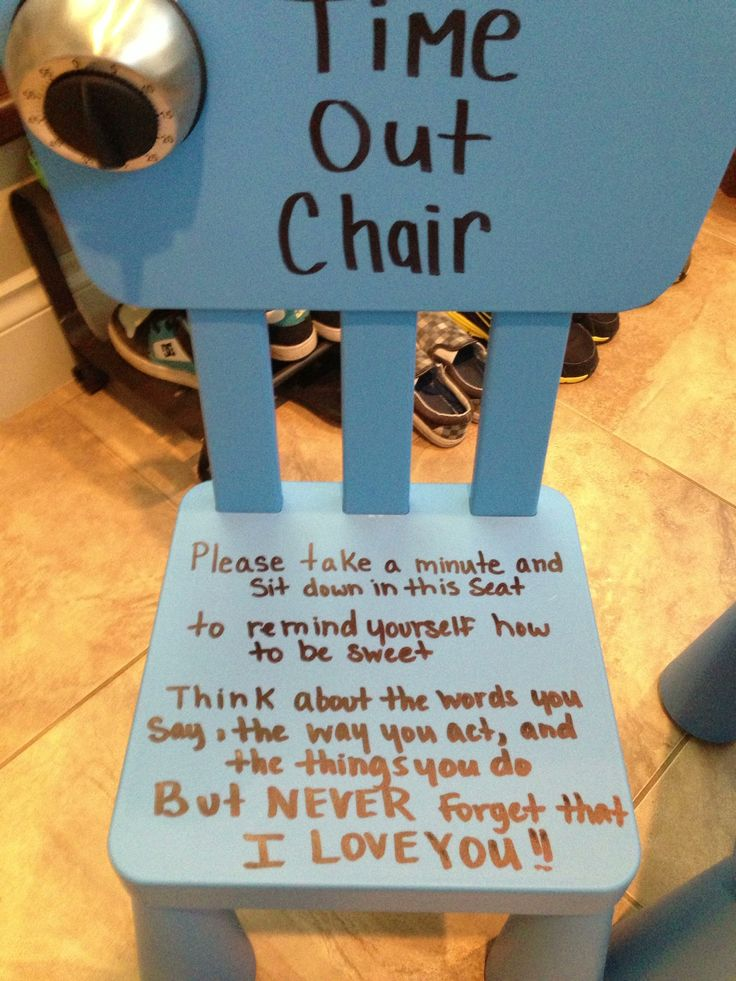 Time
Out
Chair
Please take a minute and
sit down in this seat
to remind yourself how
to be sweet
Think about the words you
say, the way you act, and
the things you do
But NEVER forget that
I LOVE YOU!!